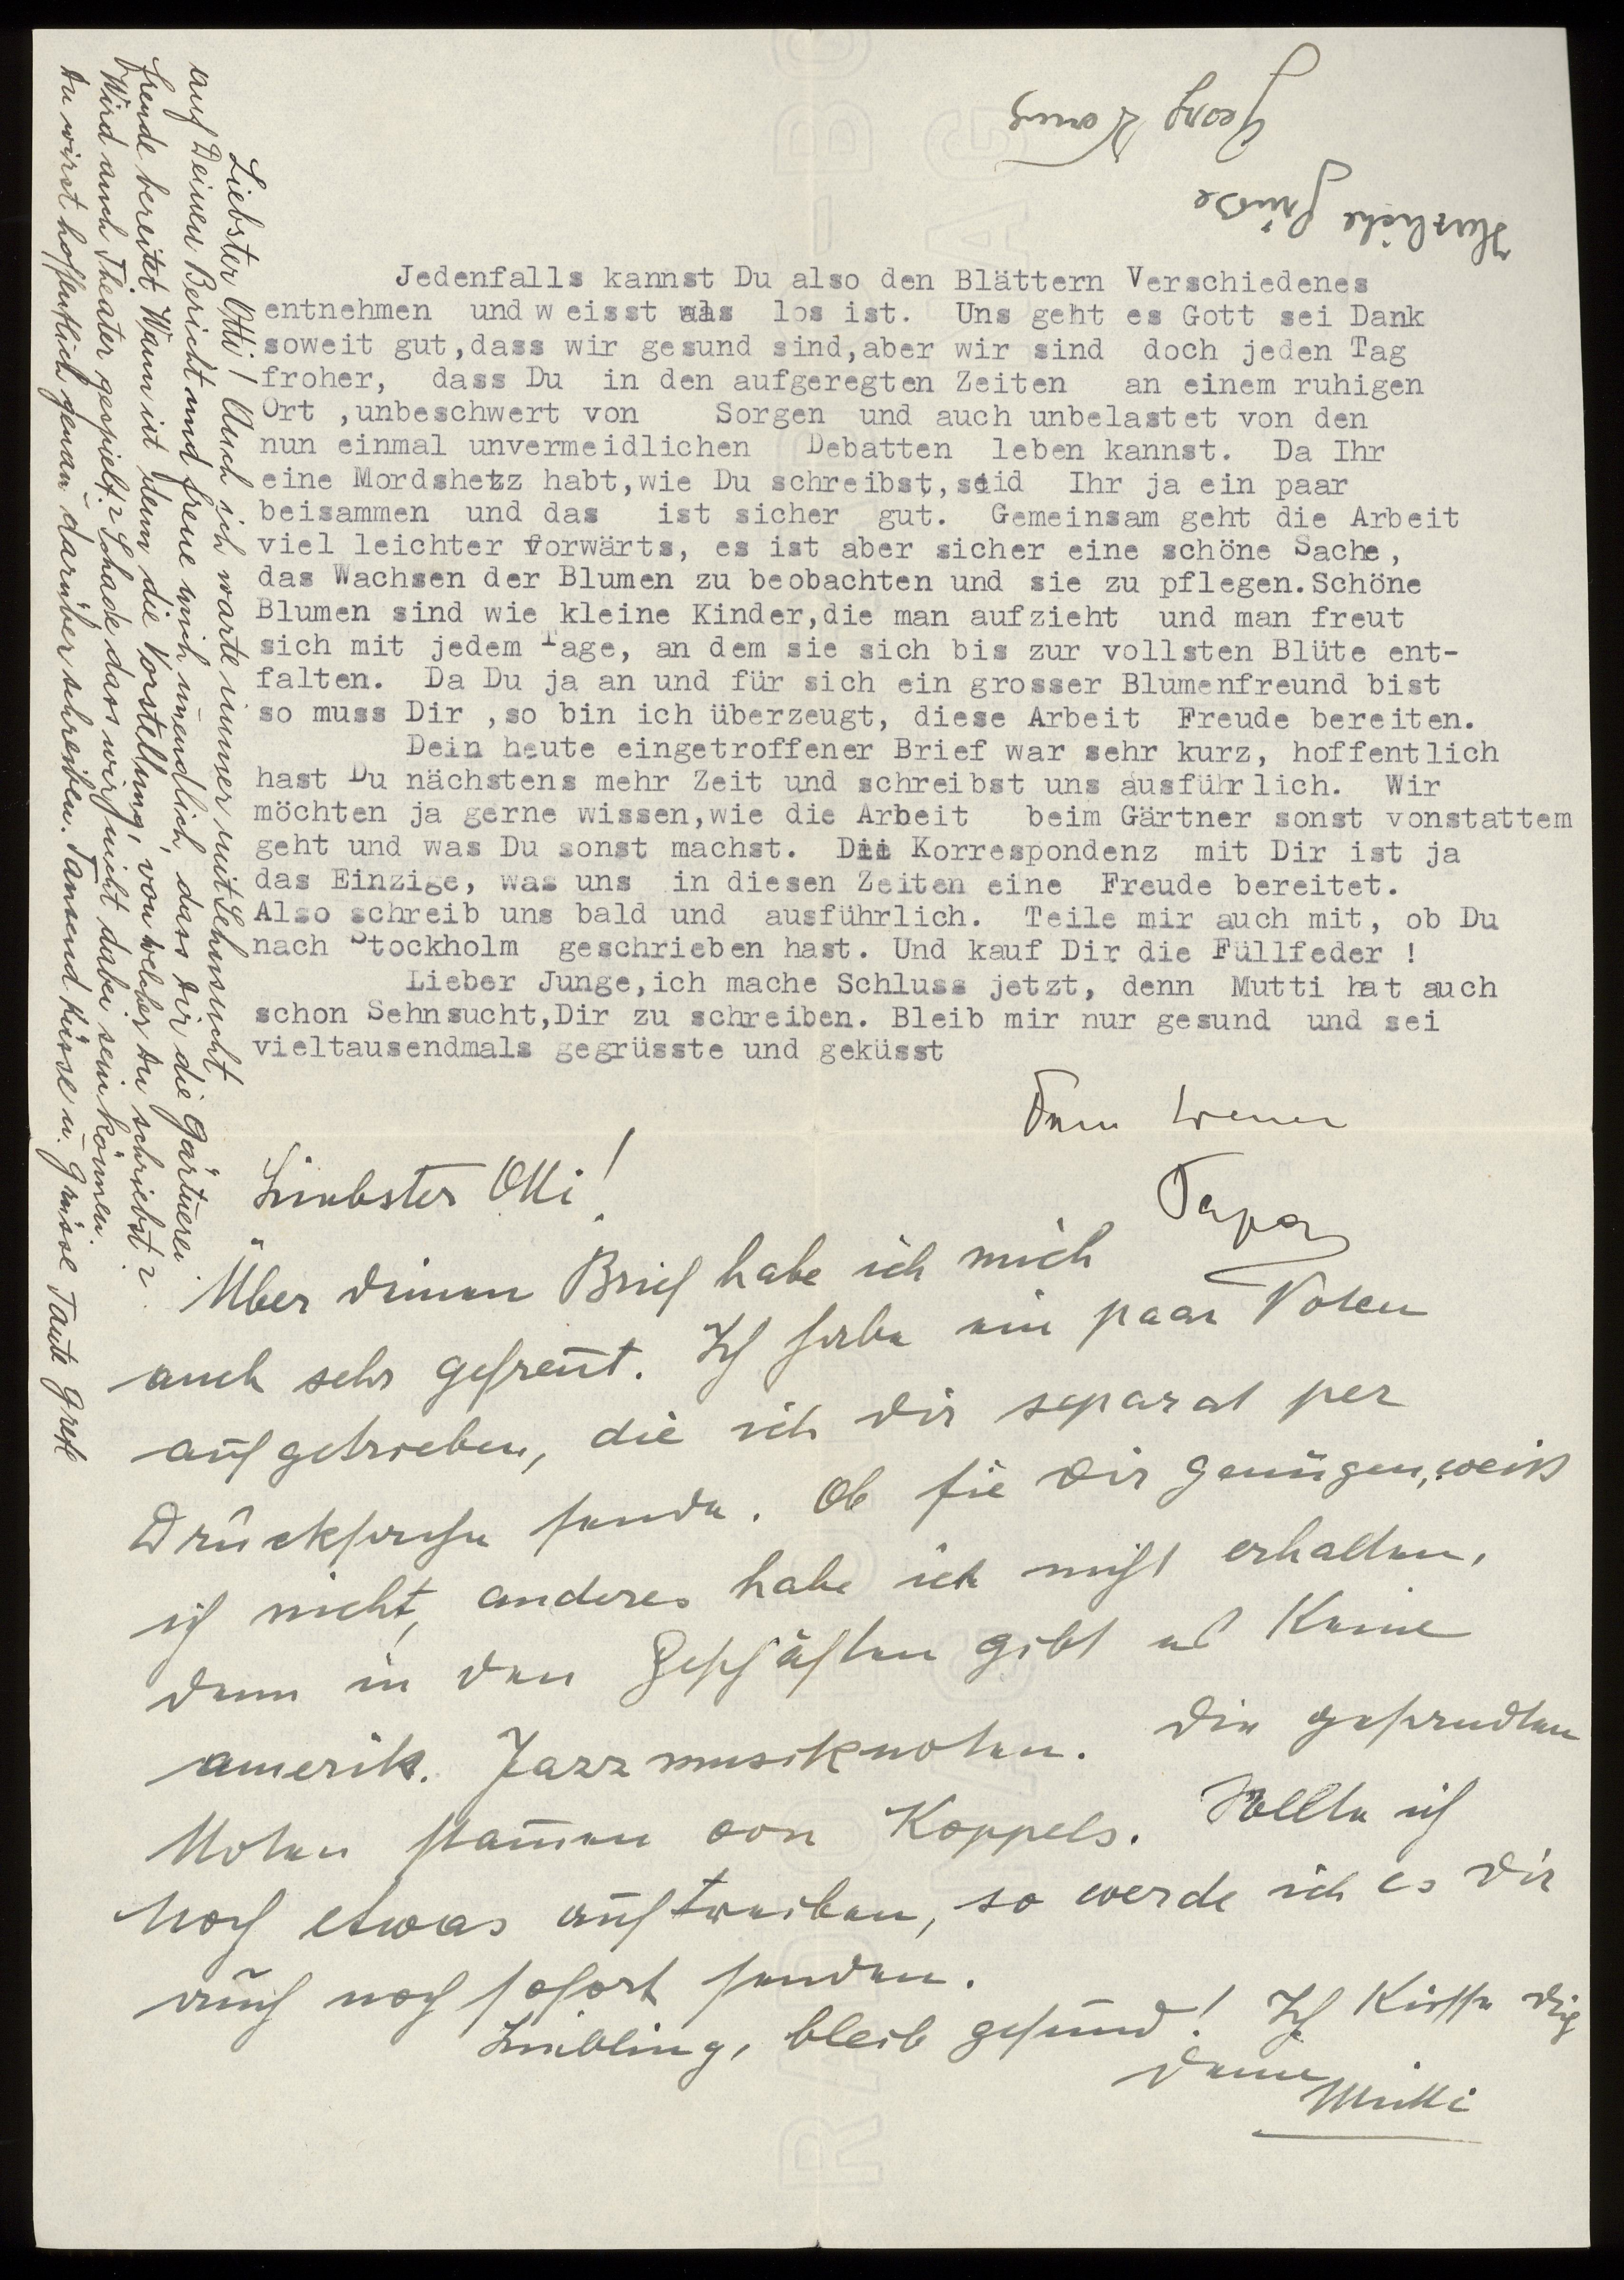 Herzliche Grüße
Georg
Jedenfalls kannst Du also den Blättern Verschiedenes
entnehmen und w eisst was los ist. Uns geht es Gott sei Dank
soweit gut,dass wir gesund sind,aber wir sind doch jeden Tag
froher, dass Du in den aufgeregten Zeiten an einem ruhigen
Ort ,unbeschwert von Sorgen und auch unbelastet von den
nun einmal unvermeidlichen Debatten leben kannst. Da Ihr
eine Mordshetz habt,wie Du schreibst,seid Ihr ja ein paar
beisammen und das ist sicher gut. Gemeinsam geht die Arbeit
viel leichter vorwärts, es ist aber sicher eine schöne Sache,
das Wachsen der Blumen zu beobachten und sie zu pflegen.Schöne
Blumen sind wie kleine Kinder,die man aufzieht und man freut
sich mit jedem Tage, an dem sie sich bis zur vollsten Blüte ent-
falten. Da Du ja an und für sich ein grosser Blumenfreund bist
so muss Dir ,so bin ich überzeugt, diese Arbeit Freude bereiten.
Dein heute eingetroffener Brief war sehr kurz, hoffentlich
hast Du nächstens mehr Zeit und schreibst uns ausführlich. Wir
möchten ja gerne wissen,wie die Arbeit beim Gärtner sonst vonstattem
geht und was Du sonst machst. Die Korrespondenz mit Dir ist ja
das Einzige, was uns in diesen Zeiten eine Freude bereitet.
Also schreib uns bald und ausführlich. Teile mir auch mit, ob Du
nach Stockholm geschrieben hast. Und kauf Dir die Füllfeder !
Lieber Junge,ich mache Schluss jetzt, denn Mutti hat auch
schon Sehnsucht,Dir zu schreiben. Bleib mir nur gesund und sei
vieltausendmals gegrüsste und geküsst
Dein treuer
Papa
Liebster Otti!
Über deinen Brief habe ich mich
auch sehr gefreut. Ich habe ein paar Noten
aufgetrieben, die ich dir separat per
Drucksache sende. Ob sie dir genügen, weiß
ich nicht, anderes habe ich nicht erhalten,
denn in den Geschäften gibt es keine
amerik. Jazzmusiknoten. Die gesendten
Noten stam̄en von Koppels. Sollte ich
noch etwas auftreiben, so werde ich es dir
auch noch sofort senden.
Liebling, bleib gesund! Ich küsse dich
deine
Mutti
Liebster Otti! Auch ich warte immer mit Sehnsucht
auf Deinen Bericht und freue mich unendlich, dass Dir die Gärtnerei
freude bereitet. Wann ist denn die Vorstellung, von welcher Du schriebst?
Wird auch Theater gespielt? Schade dass wir nicht dabei sein können.
Du wirst hoffentlich genau darüber schreiben. Tausend Küsse u. Grüsse Tante Grete